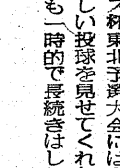 ス杯東北予選大会には
しい投球を見せてくれ
も一時的で長続きはし